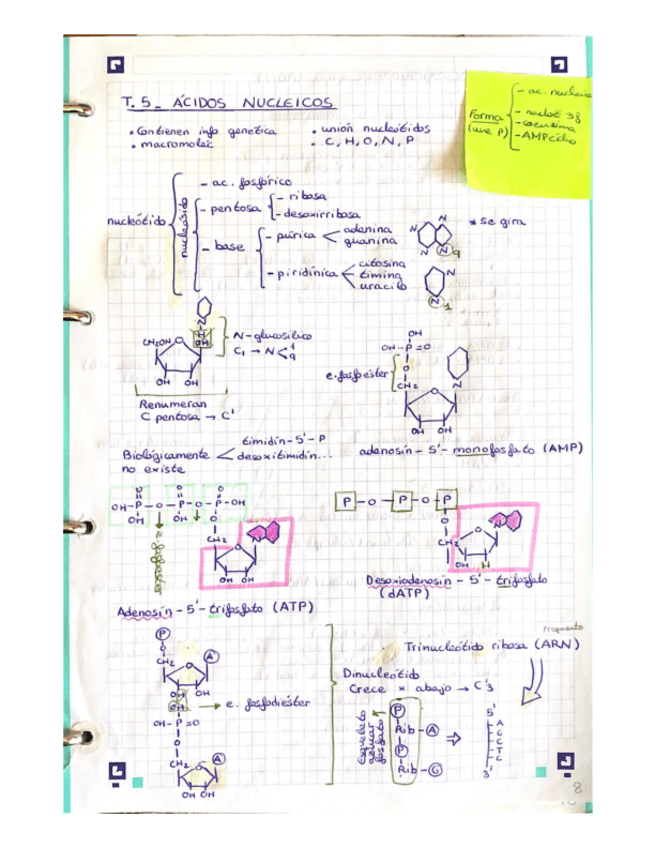 T.5_ ÁCIDOS NUCLEICOS
• Contienen info genética
• unión nucleótidos
• macromoléc
• C, H, O, N, P
Forma (use P)
- ac. nucleico
- nucleót
- coenzima
- AMP cíclio
nucleótido
nucleósido
- ac. fosfórico
- pentosa
- ribosa
- desoxirribosa
- base
- púrica < adenina
guanina
- piridínica < citosina
timina
uracilo
* se gira
N
N
N
N 9
N
N 1
N
H
OH
CH₂OH
O
OH OH
N-glucosílico
C₁ → N < 1
9
Renumeran
C pentosa → C'
OH
OH-P=O
O
e. fosfoéster
CH₂
O
N
OH OH
adenosín - 5' - monofosfato (AMP)
Biológicamente no existe < timidín-5'-P
desoxitimidín...
O O O
OH-P-O-P-O-P-OH
OH OH O
CH₂
O
N
OH OH
Adenosín - 5' - trifosfato (ATP)
P-O-P-O-P
O
CH₂
O
N
OH H
Desoxiadenosín - 5' - trifosfato
(dATP)
P
O
CH₂
O
A
OH
OH
OH-P=O
O
CH₂
O
A
OH OH
e. fosfodiéster
Fragmento
Trinucleótido ribosa (ARN)
Dinucleótido
Crece × abajo → C'3
Esqueleto
azúcar
fosfato
P
Rib-A
P
Rib-G
5'
A
G
C
T
C
3'
8